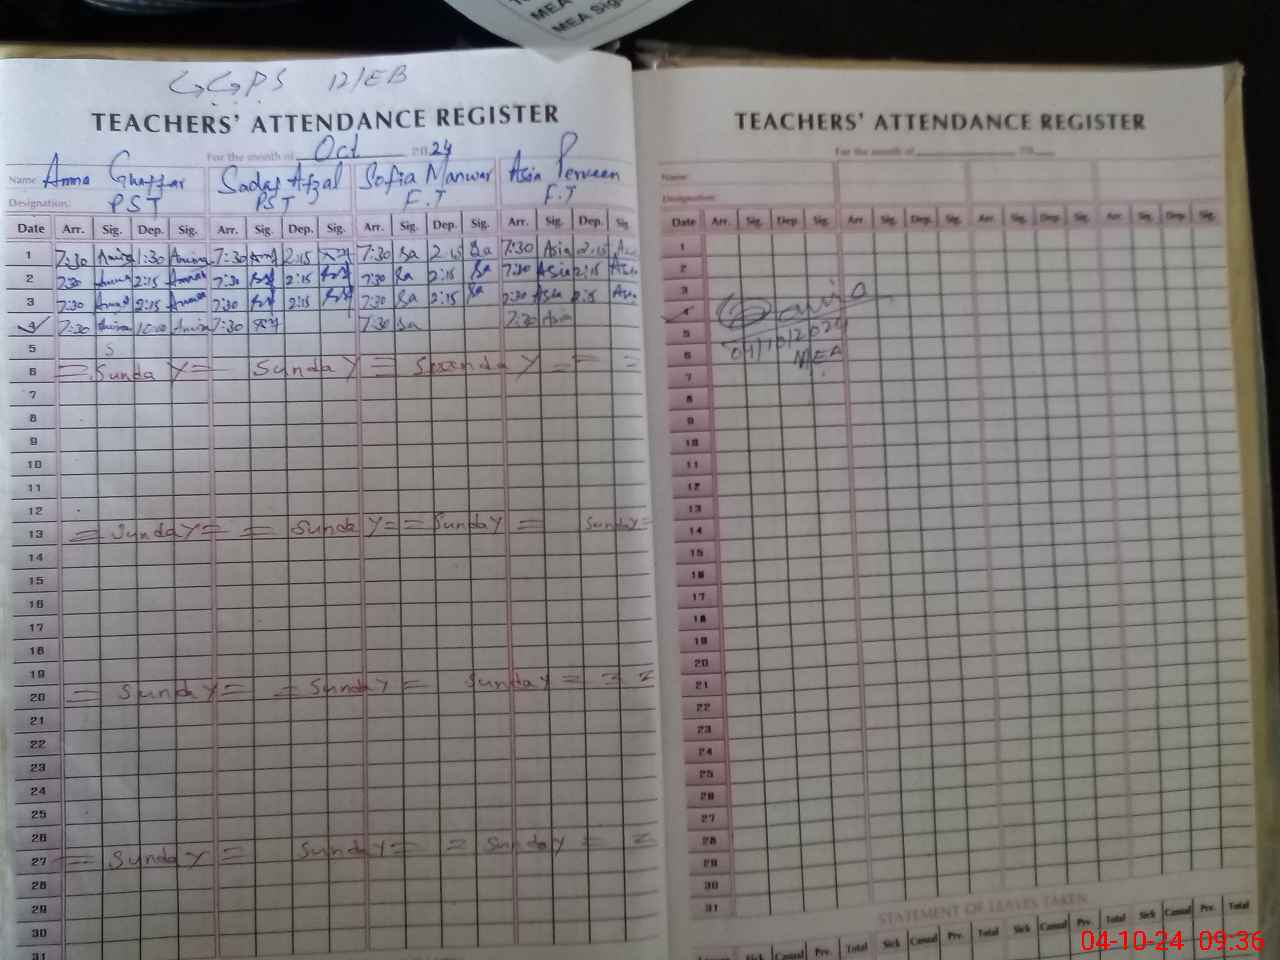 MEA
MEA Sig
GGPS 12/EB
TEACHERS' ATTENDANCE REGISTER
For the month of Oct 2024
Name: Amna Ghaffar Sadaf Afzal Sofia Manwar Asia Perveen
Designation: PST PST F.T F.T
Date Arr. Sig. Dep. Sig. Arr. Sig. Dep. Sig. Arr. Sig. Dep. Sig. Arr. Sig. Dep. Sig
1 7:30 Amna 1:30 Amna 7:30 2:15 7:30 Sa 2:15 Sa 7:30 Asia 2:15 Asia
2 7:30 Amna 2:15 Amna 7:30 2:15 7:30 Sa 2:15 Sa 7:30 Asia 2:15 Asia
3 7:30 Amna 2:15 Amna 7:30 2:15 7:30 Sa 2:15 Sa 7:30 Asia 2:15 Asia
4 7:30 Amna 10:00 Amna 7:30 7:30 Sa 7:30 Asia
5 S
6 = Sunday = Sunday = Sunday = = =
7
8
9
10
11
12
13 = Sunday = = Sunday = = Sunday = Sunday =
14
15
16
17
18
19
20 = Sunday = = Sunday = Sunday = = =
21
22
23
24
25
26
27 = Sunday = Sunday = = Sunday = =
28
29
30
31
TEACHERS' ATTENDANCE REGISTER
For the month of 20
Name:
Designation:
Date Arr. Sig. Dep. Sig. Arr. Sig. Dep. Sig. Arr. Sig. Dep. Sig. Arr. Sig. Dep. Sig.
1
2
3
4
5
04/10/2024
6
MEA
7
8
9
10
11
12
13
14
15
16
17
18
19
20
21
22
23
24
25
26
27
28
29
30
31
STATEMENT OF LEAVES TAKEN
Casual Prv. Total Sick Casual Prv. Total Sick Casual Prv. Total Sick Casual Prv. Total
04-10-24 09:36